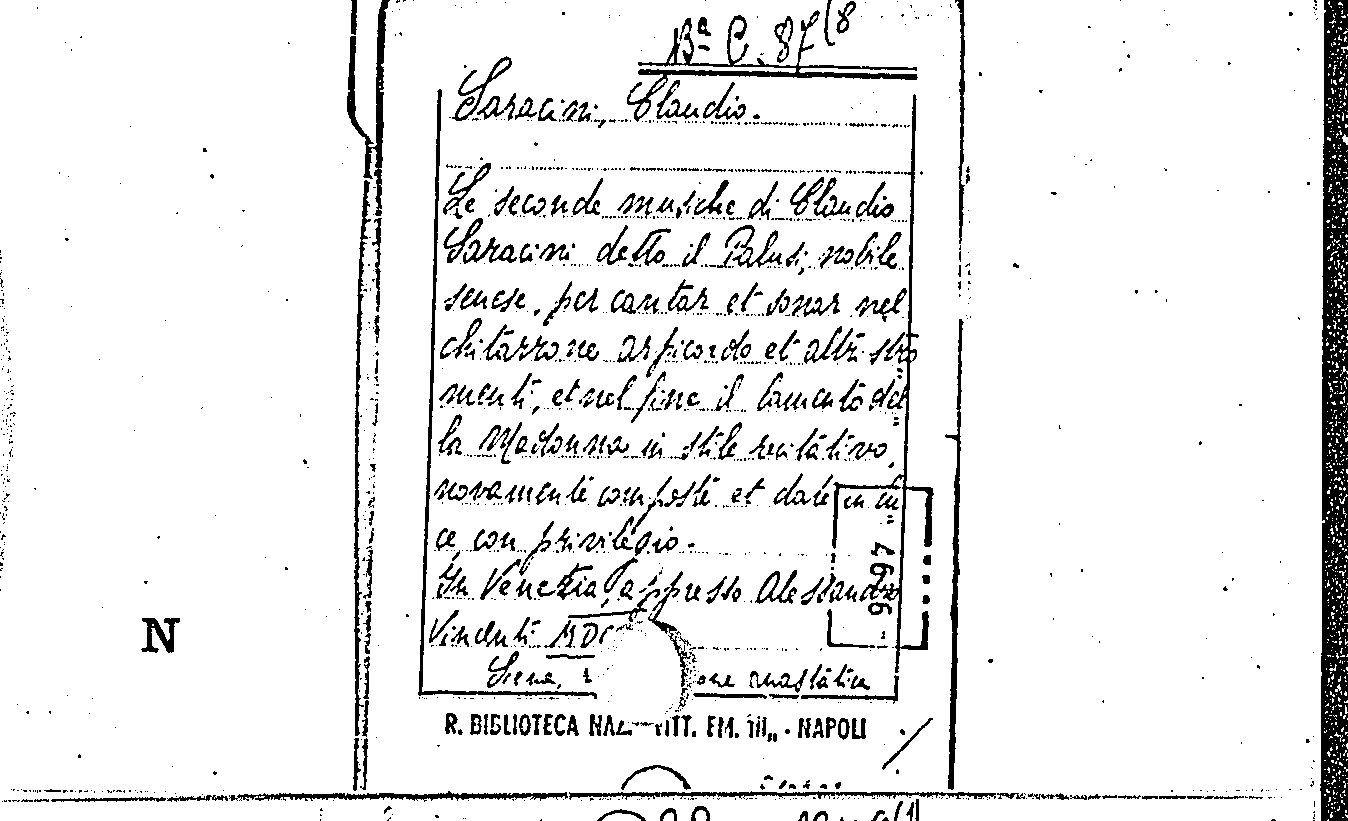 Bª C. 87(8
Saracini, Claudio.
Le seconde musiche di Claudio
Saracini detto il Palusi, nobile
senese, per cantar et sonar nel
chitarrone arpicordo et altri stro
menti, et nel fine il lamento del
la Madonna in stile recitativo,
novamente composte et date in lu
ce, con privilegio.
In Venezia, appresso Alessandro
Vincenti MDC
Siena, one anastatica
R. BIBLIOTECA NAZ. VITT. EM. III„ - NAPOLI
N